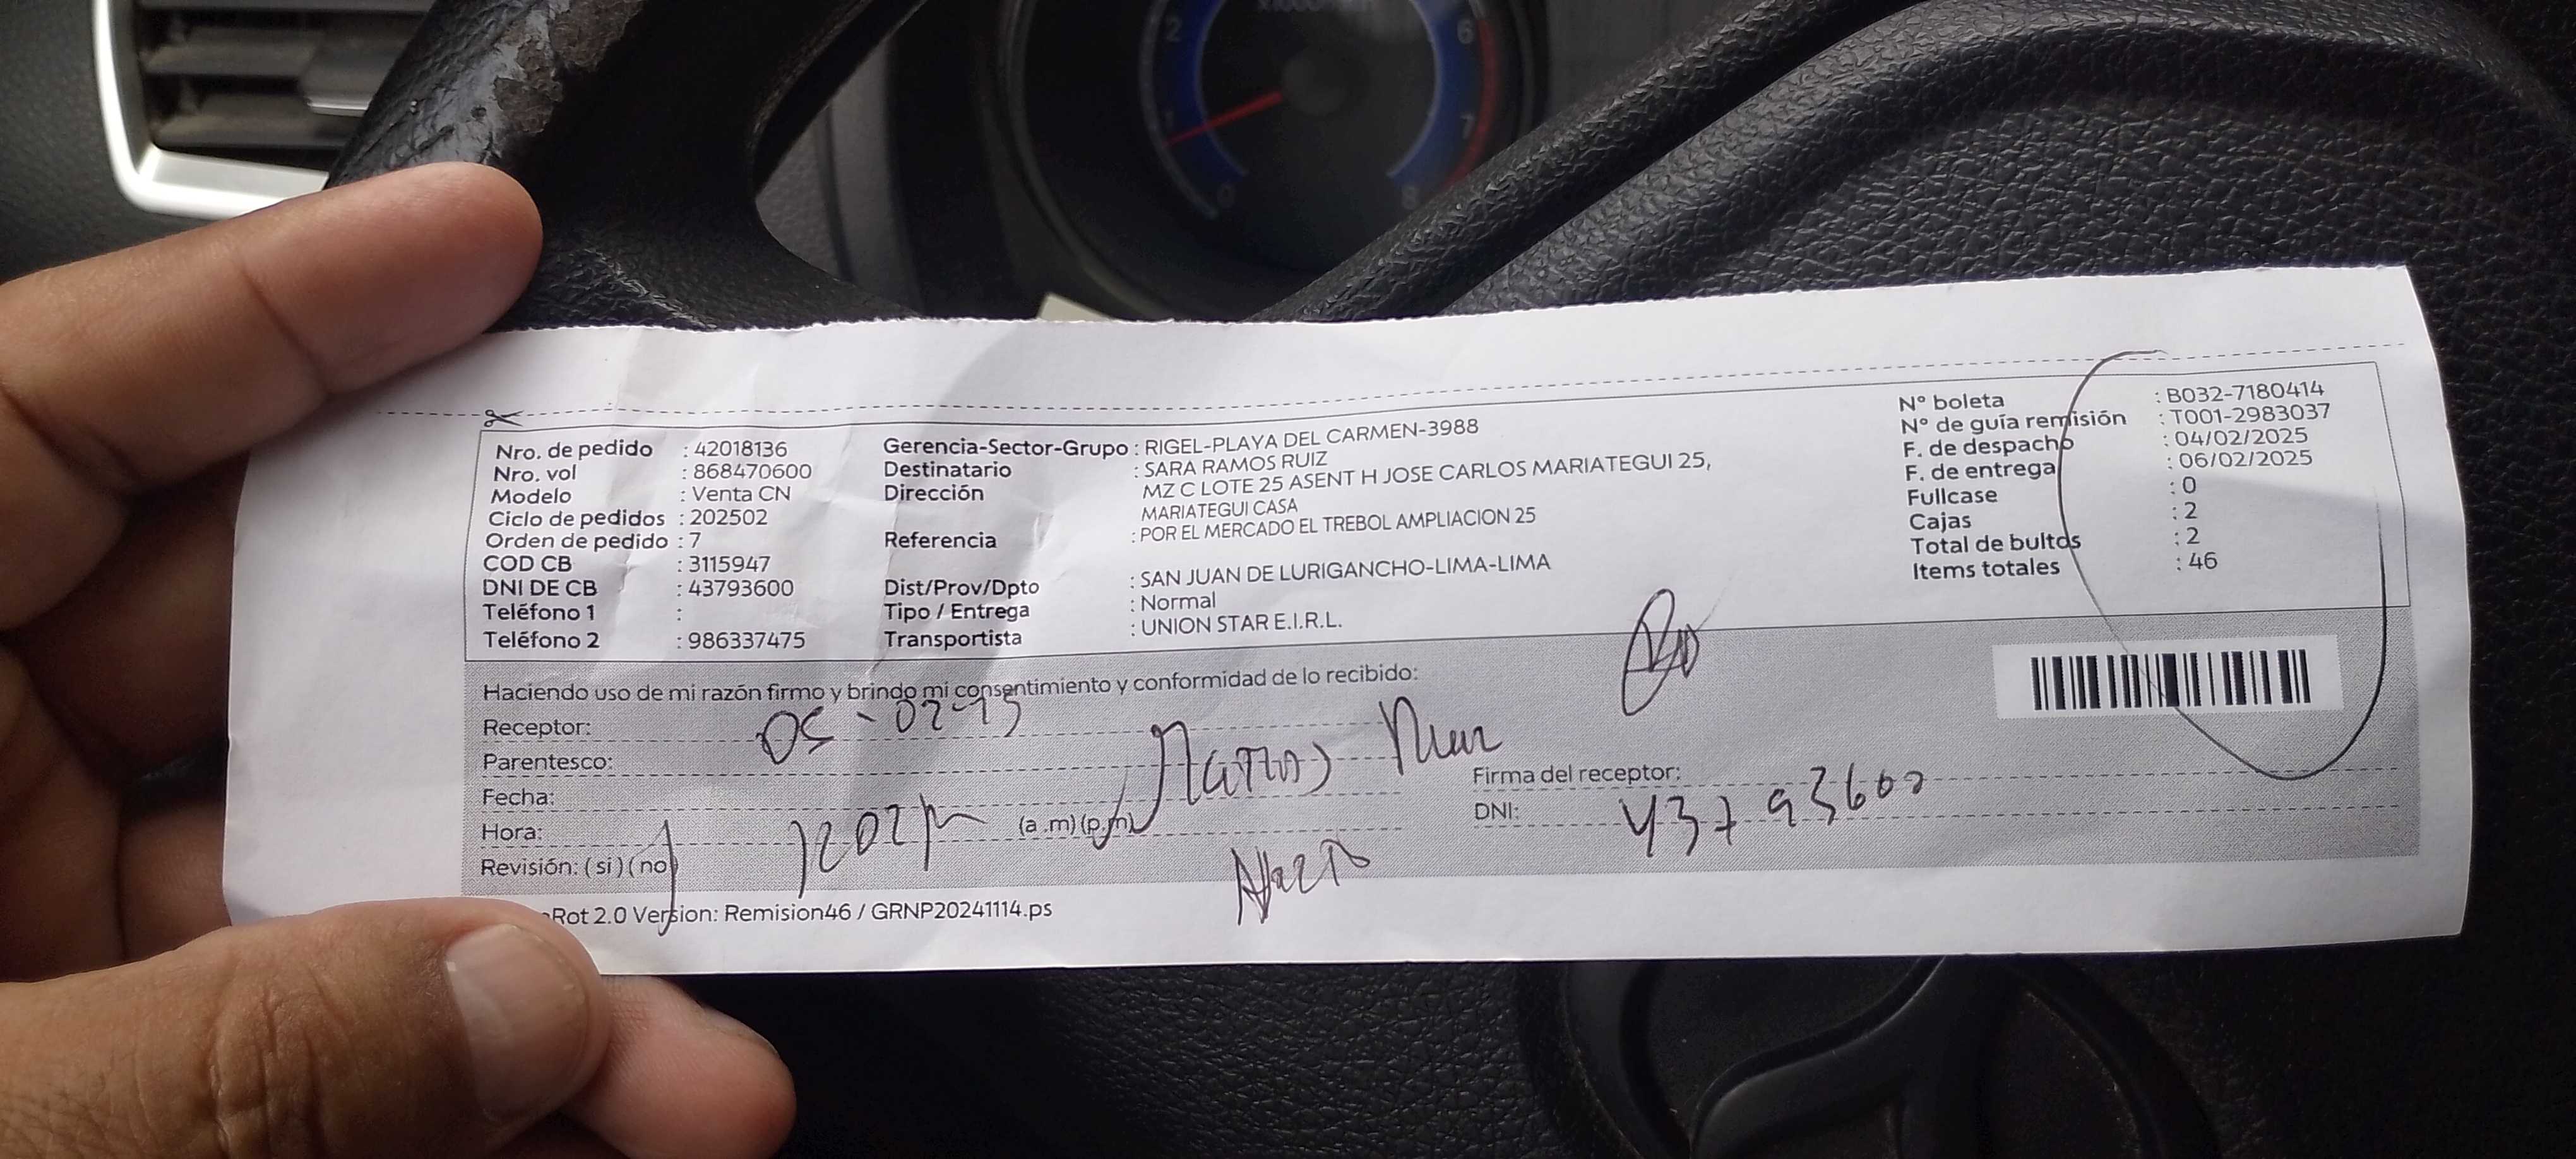 Nro. de pedido : 42018136
Nro. vol : 868470600
Modelo : Venta CN
Ciclo de pedidos : 202502
Orden de pedido : 7
COD CB : 3115947
DNI DE CB : 43793600
Teléfono 1 :
Teléfono 2 : 986337475
Gerencia-Sector-Grupo : RIGEL-PLAYA DEL CARMEN-3988
Destinatario : SARA RAMOS RUIZ
Dirección MZ C LOTE 25 ASENT H JOSE CARLOS MARIATEGUI 25,
MARIATEGUI CASA
Referencia : POR EL MERCADO EL TREBOL AMPLIACION 25
Dist/Prov/Dpto : SAN JUAN DE LURIGANCHO-LIMA-LIMA
Tipo / Entrega : Normal
Transportista : UNION STAR E.I.R.L.
N° boleta : B032-7180414
N° de guía remisión : T001-2983037
F. de despacho : 04/02/2025
F. de entrega : 06/02/2025
Fullcase : 0
Cajas : 2
Total de bultos : 2
Items totales : 46
Haciendo uso de mi razón firmo y brindo mi consentimiento y conformidad de lo recibido:
Receptor:
Parentesco:
Fecha:
Hora: (a .m) (p.m)
Revisión: ( si ) ( no )
Firma del receptor:
DNI: 43793600
Rot 2.0 Version: Remision46 / GRNP20241114.ps
2
1
0
6
7
8